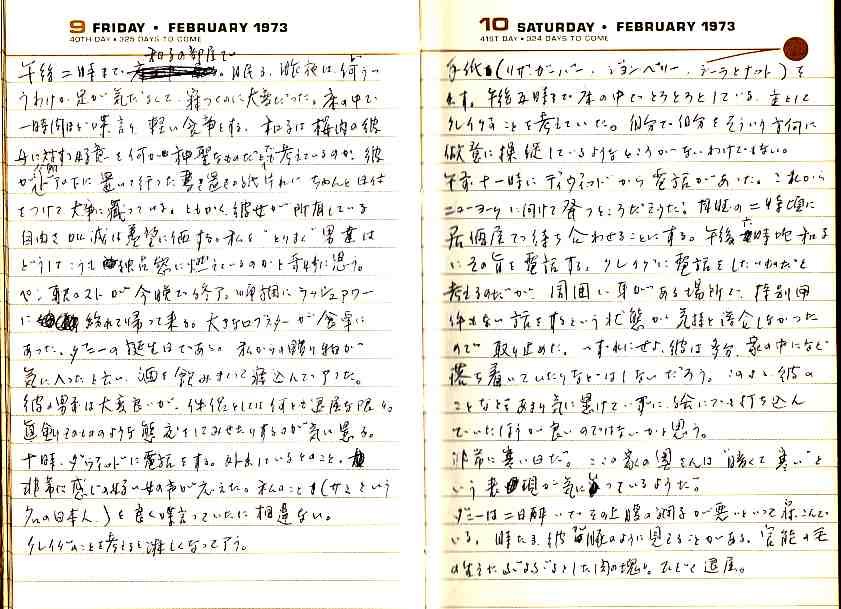 9 FRIDAY • FEBRUARY 1973
40TH DAY • 325 DAYS TO COME
和子の部屋で
午後二時まで 。眠る、昨夜は、何う
うわけか足が気だるくて、寝つくのに大変だった。床の中で
一時間ほど喋言り、軽い食事をする。和子は 彼
女に対する好意を何か神聖なものだと考えているのか、彼
が 下に置いて行った書き置きの紙片れにちゃんと日付
をつけて大事に蔵っている。ともかく、彼女が所有している
自由さ加減は羨望に価する。私をとりまく男達は
どうしてこうも 思う。
ペン駅ポストが今晩で終了。 ラッシュアワー
に 紛れて帰って来る。大きなロブスターが食卓に
あった。ダニーの誕生日である。私からの贈り物が
気に入ったと云い、酒を飲みすぎて寝込んでしまった。
彼の男子は大変良いが、 退屈な限り。
態度をしてみせたりするのが気に障る。
十時、ダヴィッドに電話をする。外出しているとのこと。
非常に感じの好い女の声が応えた。私のことも(サミという
名の日本人)を良く喋言っていたに相違ない。
クレイグのことを考えると淋しくなってしまう。
10 SATURDAY • FEBRUARY 1973
41ST DAY • 324 DAYS TO COME
手紙(リザ・ガーバー、ジョンペリー、 )を
出す。午後五時まで床の中でとろとろとしている、主として
クレイグのことを考えていた。自分で自分をそういう方向に
故意に操縦しているようなところがないわけでもない。
午前十一時にデイヴィッドから電話があった。これから
ニューヨークに向けて発つところだそうだ。 の二時頃に
居酒屋で待ち合わせることにする。午後六時 和子
にその旨を電話する。クレイグに電話をしたいものだと
考えるのだが、周囲に耳がある場所で、特別用
件もない話をするという状態が気持と合しなかった
ので取り止めた。いずれにせよ、彼は多分、家の中になど
落ち着いていたりなどはしないだろう。このまま彼の
ことなどをあまり気に掛けていずに、絵にでも打ち込ん
でいたほうが良いのではないかと思う。
非常に寒い日だ。ここの家の奥さんは“暗くて寒い”と
いう表現が気に入っているようだ。
ダニーは二日酔いでその上腹の調子が悪いといって寝こんで
いる。時たま、彼が豚のように見えることがある。官能の毛
の生えたぶよぶよとした肉の塊り。ひどく退屈。